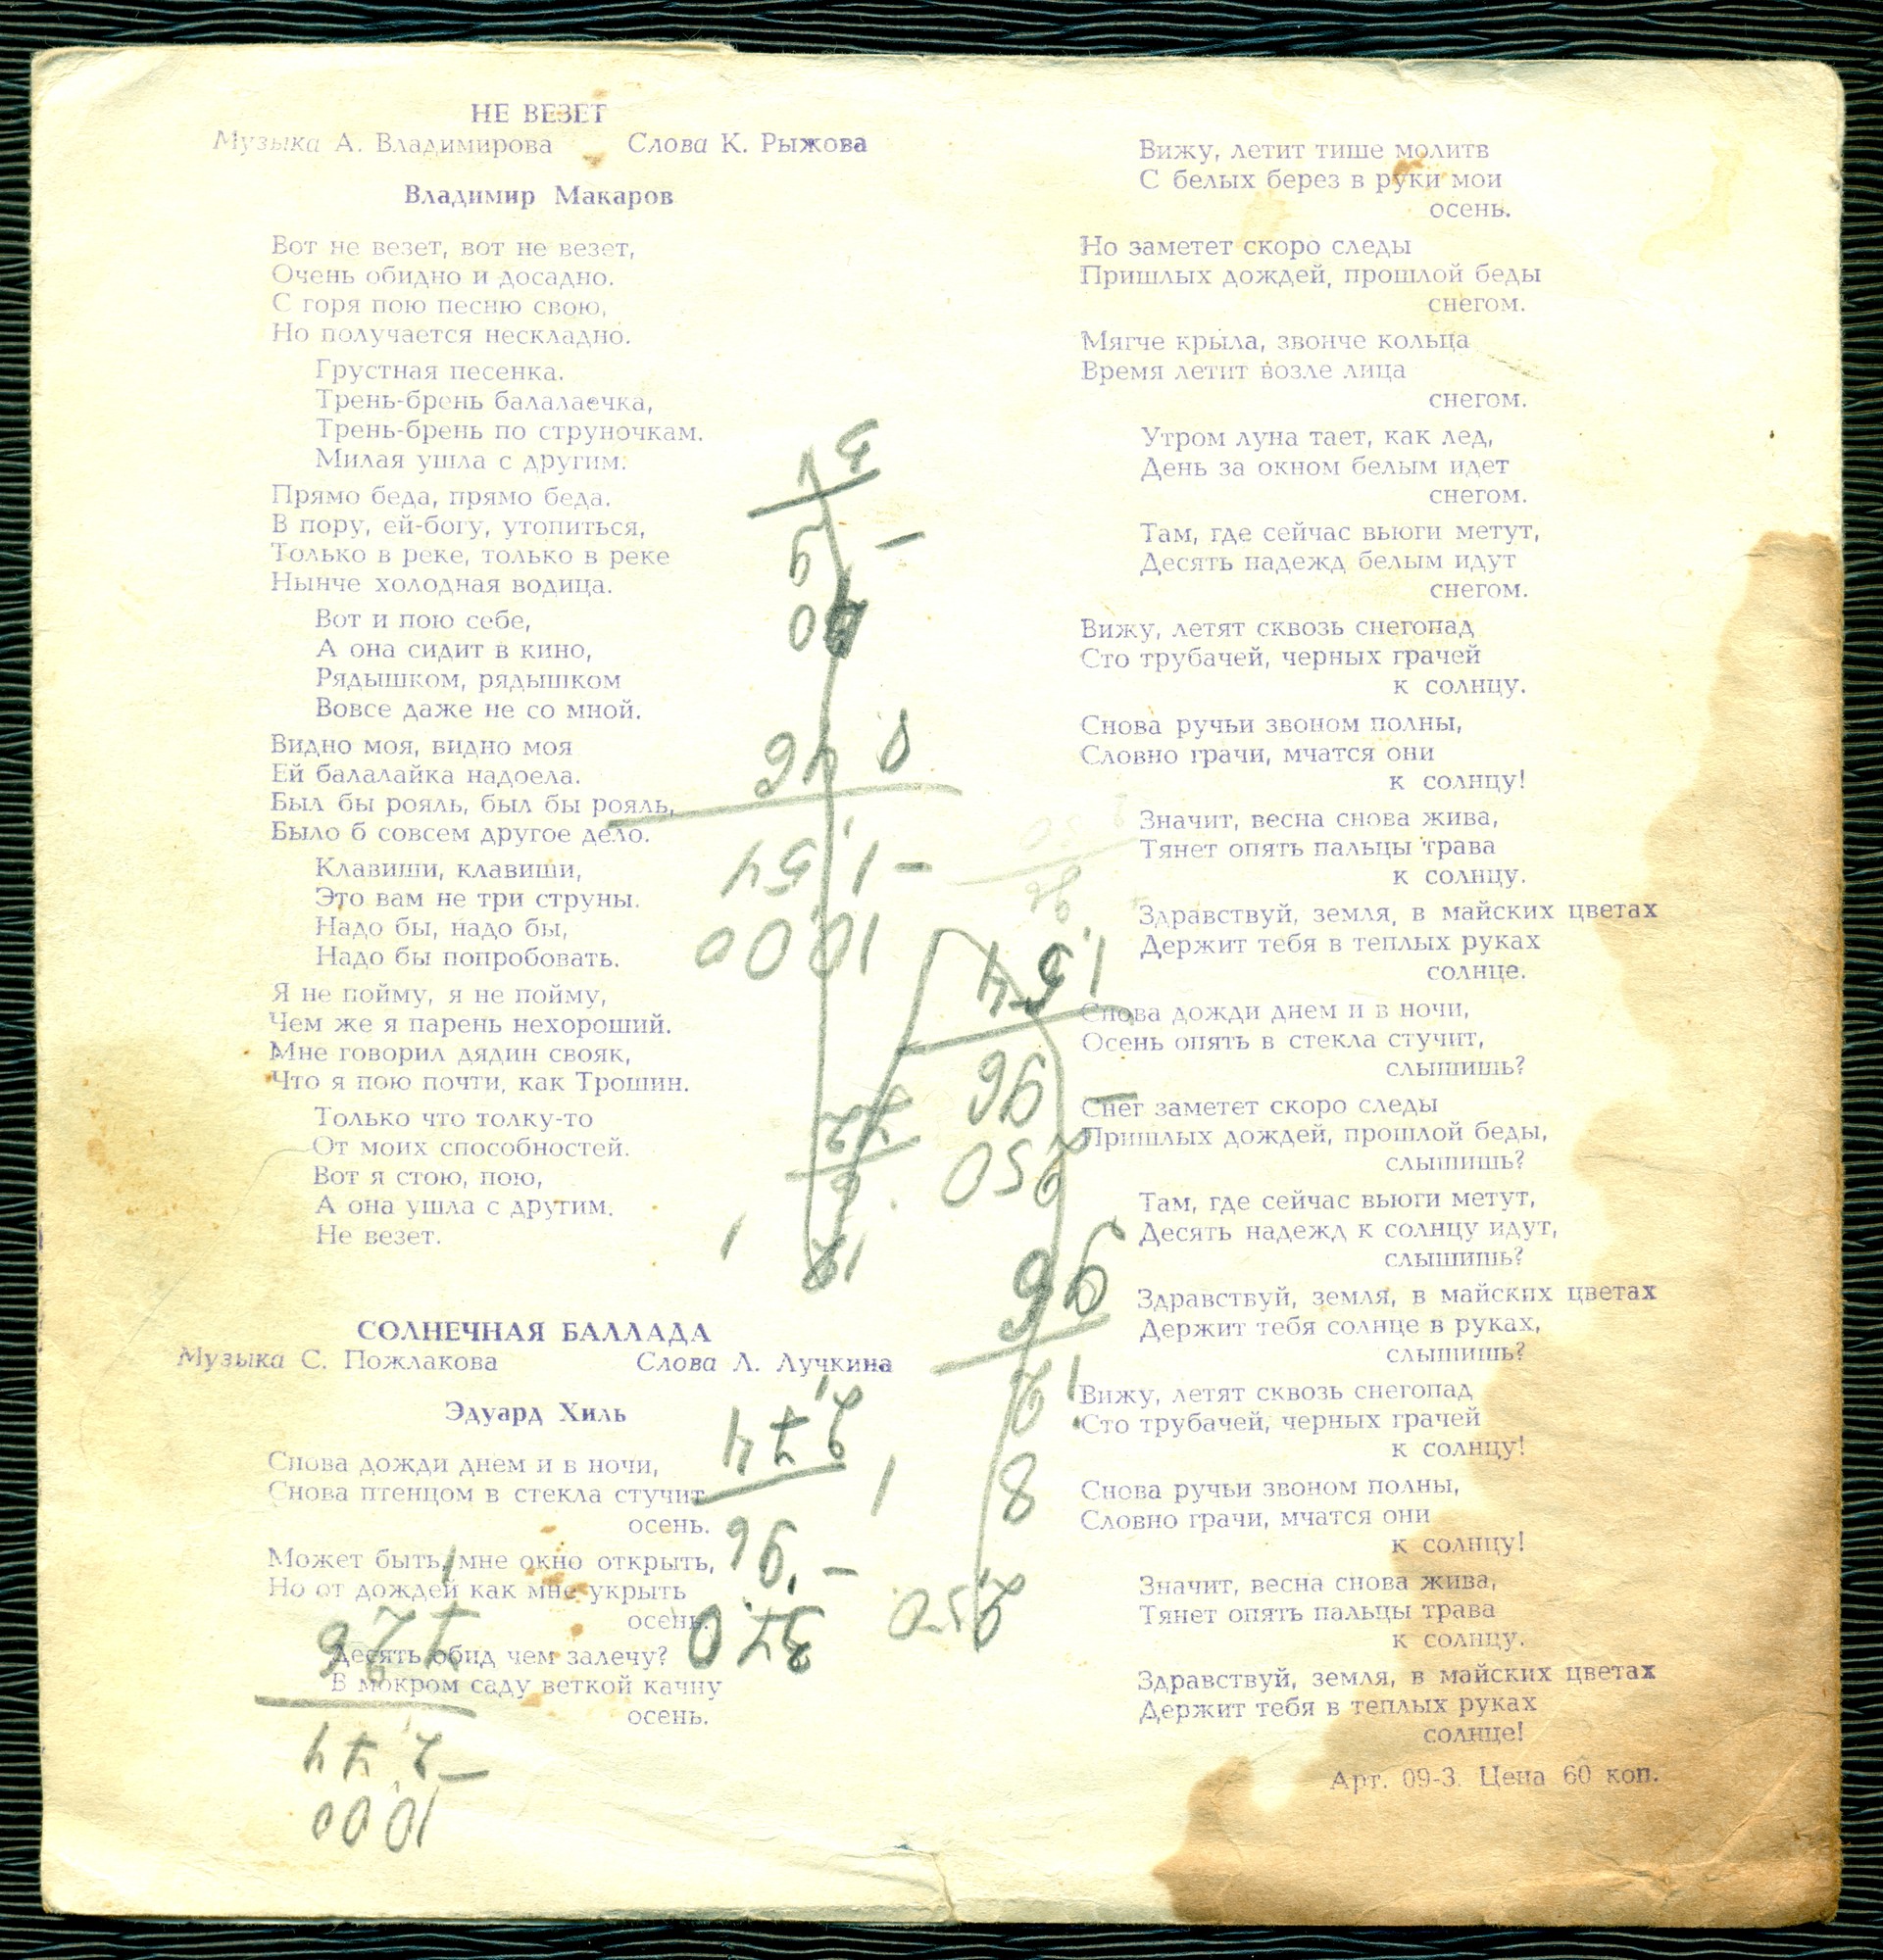 НЕ ВЕЗЕТ
Музыка А. Владимирова Слова К. Рыжова
Владимир Макаров
Вот не везет, вот не везет,
Очень обидно и досадно.
С горя пою песню свою,
Но получается нескладно.
Грустная песенка.
Трень-брень балалаечка,
Трень-брень по струночкам.
Милая ушла с другим.
Прямо беда, прямо беда.
В пору, ей-богу, утопиться,
Только в реке, только в реке
Нынче холодная водица.
Вот и пою себе,
А она сидит в кино,
Рядышком, рядышком
Вовсе даже не со мной.
Видно моя, видно моя
Ей балалайка надоела.
Был бы рояль, был бы рояль,
Было б совсем другое дело.
Клавиши, клавиши,
Это вам не три струны.
Надо бы, надо бы,
Надо бы попробовать.
Я не пойму, я не пойму,
Чем же я парень нехороший.
Мне говорил дядин свояк,
Что я пою почти, как Трошин.
Только что толку-то
От моих способностей.
Вот я стою, пою,
А она ушла с другим.
Не везет.
СОЛНЕЧНАЯ БАЛЛАДА
Музыка С. Пожлакова Слова Л. Лучкина
Эдуард Хиль
Снова дожди днем и в ночи,
Снова птенцом в стекла стучит
осень.
Может быть, мне окно открыть,
Но от дождей как мне укрыть
осень.
Десять обид чем залечу?
В мокром саду веткой качну
осень.
Вижу, летит тише молитв
С белых берез в руки мои
осень.
Но заметет скоро следы
Пришлых дождей, прошлой беды
снегом.
Мягче крыла, звонче кольца
Время летит возле лица
снегом.
Утром луна тает, как лед,
День за окном белым идет
снегом.
Там, где сейчас вьюги метут,
Десять надежд белым идут
снегом.
Вижу, летят сквозь снегопад
Сто трубачей, черных грачей
к солнцу.
Снова ручьи звоном полны,
Словно грачи, мчатся они
к солнцу!
Значит, весна снова жива,
Тянет опять пальцы трава
к солнцу.
Здравствуй, земля, в майских цветах
Держит тебя в теплых руках
солнце.
Снова дожди днем и в ночи,
Осень опять в стекла стучит,
слышишь?
Снег заметет скоро следы
Пришлых дождей, прошлой беды,
слышишь?
Там, где сейчас вьюги метут,
Десять надежд к солнцу идут,
слышишь?
Здравствуй, земля, в майских цветах
Держит тебя солнце в руках,
слышишь?
Вижу, летят сквозь снегопад
Сто трубачей, черных грачей
к солнцу!
Снова ручьи звоном полны,
Словно грачи, мчатся они
к солнцу!
Значит, весна снова жива,
Тянет опять пальцы трава
к солнцу.
Здравствуй, земля, в майских цветах
Держит тебя в теплых руках
солнце!
Арт. 09-3. Цена 60 коп.